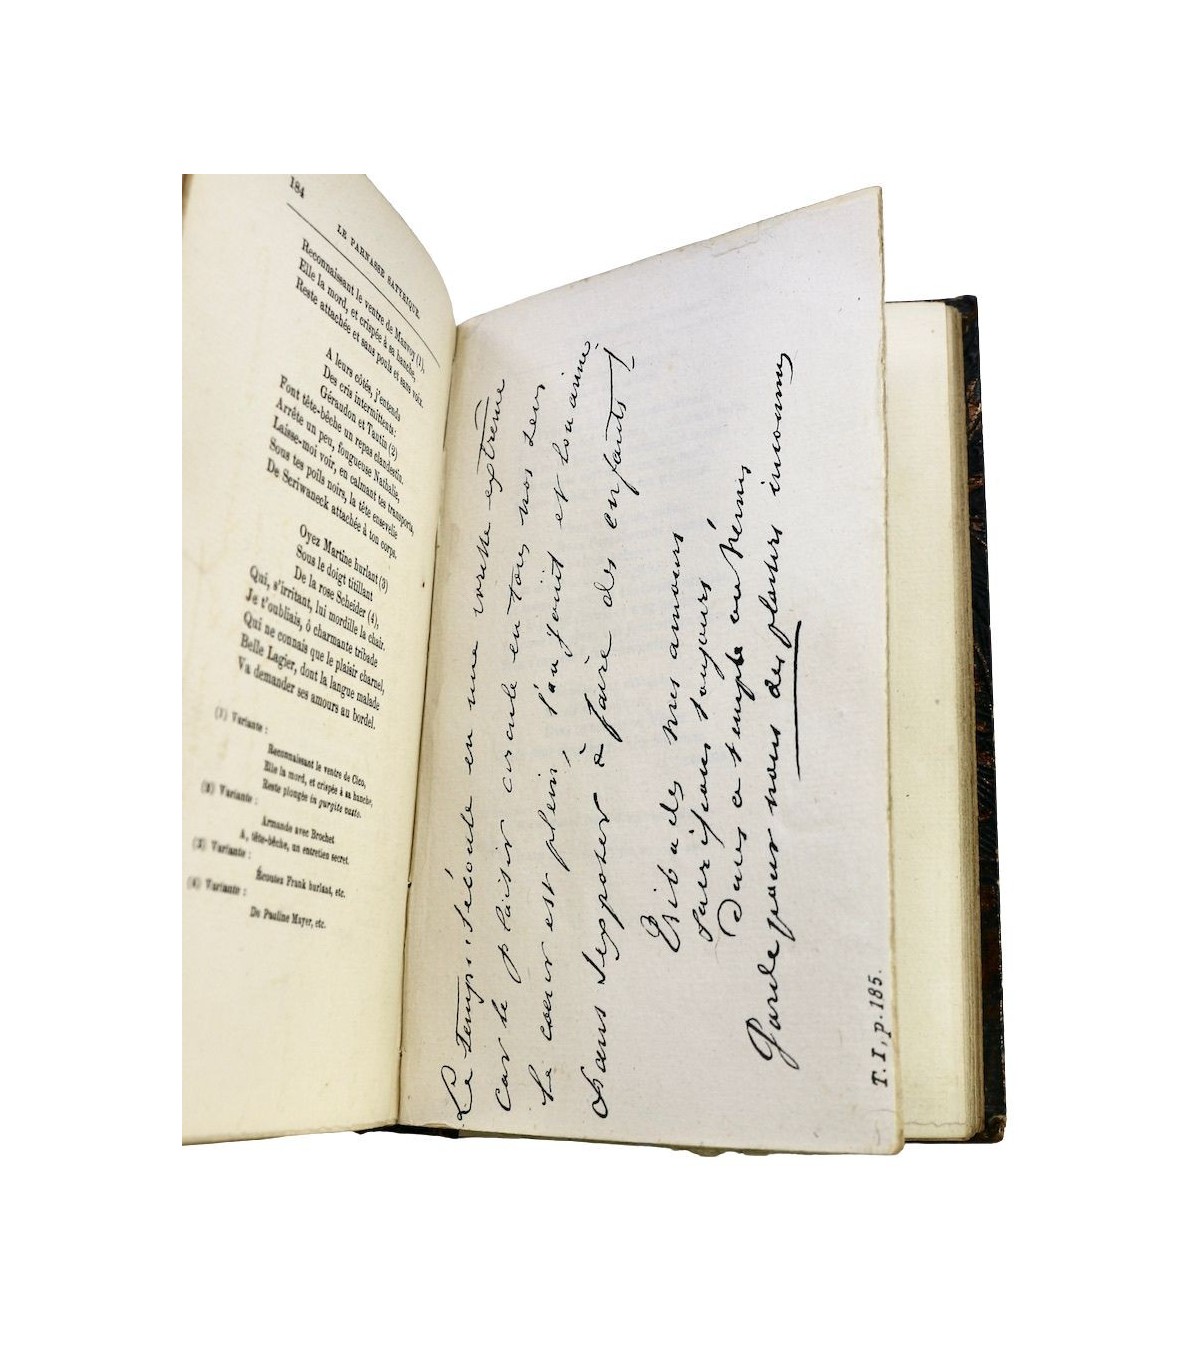 184
LE PARNASSE SATYRIQUE.
Reconnaissant le ventre de Manvoy (1),
Elle la mord, et crispée à sa hanche,
Reste attachée et sans pouls et sans voix.
A leurs côtés, j'entends
Des cris intermittents:
Géraudon et Tautin (2)
Font tête-bêche un repas clandestin.
Arrête un peu, fougueuse Nathalie,
Laisse-moi voir, en calmant tes transports,
Sous tes poils noirs, la tête ensevelie
De Scriwaneck attachée à ton corps.
Oyez Martine hurlant (3)
Sous le doigt titillant
De la rose Scheider (4),
Qui, s'irritant, lui mordille la chair.
Je t'oubliais, ô charmante tribade
Qui ne connais que le plaisir charnel,
Belle Lagier, dont la langue malade
Va demander ses amours au bordel.
(1) Variante :
Reconnaissant le ventre de Cico,
Elle la mord, et crispée à sa hanche,
Reste plongée in gurgite vasto.
(2) Variante :
Armande avec Brochet
A, tête-bêche, un entretien secret.
(3) Variante :
Écoutez Frank hurlant, etc.
(4) Variante :
De Pauline Mayer, etc.
Le temps s'écoule en une ivresse extrême
car le plaisir circule en tous nos sens
le coeur est plein, l'on jouit et l'on aime
Sans s'exposer à faire des enfants!
des nos amours
Sacrifions toujours
Dans ce temple où Vénus
Garde pour nous des plaisirs inconnus
T. I, p. 185.